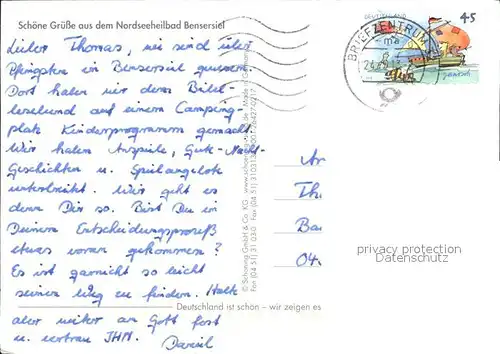 Schöne Grüße aus dem Nordseeheilbad Bensersiel
Lieber Thomas, wir sind über
Pfingsten in Bensersiel gewesen.
Dort haben wir dem Bibel-
lesebund auf einem Camping-
platz Kinderprogramm gemacht.
Wir haben Anspiele, Gute-Nacht-
Geschichten u. Spielangebote
unterbreitet. Wie geht es
denn Dir so. Bist Du in
Deinem Entscheidungsprozeß
etwas voran gekommen?
Es ist garnicht so leicht
seinen Weg zu finden. Halte
aber weiter an Gott fest
u. vertrau IHM. Daniel
Deutschland ist schön – wir zeigen es
© Schöning GmbH & Co. KG
BRIEFZENTRUM
DEUTSCHLAND
45
An
Th
Ba
04
privacy protection
Datenschutz